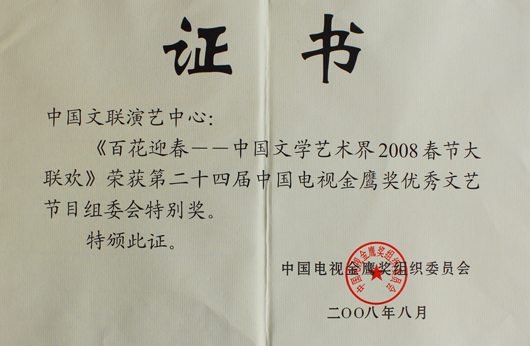 证书
中国文联演艺中心：
《百花迎春——中国文学艺术界2008春节大
联欢》荣获第二十四届中国电视金鹰奖优秀文艺
节目组委会特别奖。
特颁此证。
中国电视金鹰奖组织委员会
中国电视金鹰奖组织委员会
二〇〇八年八月